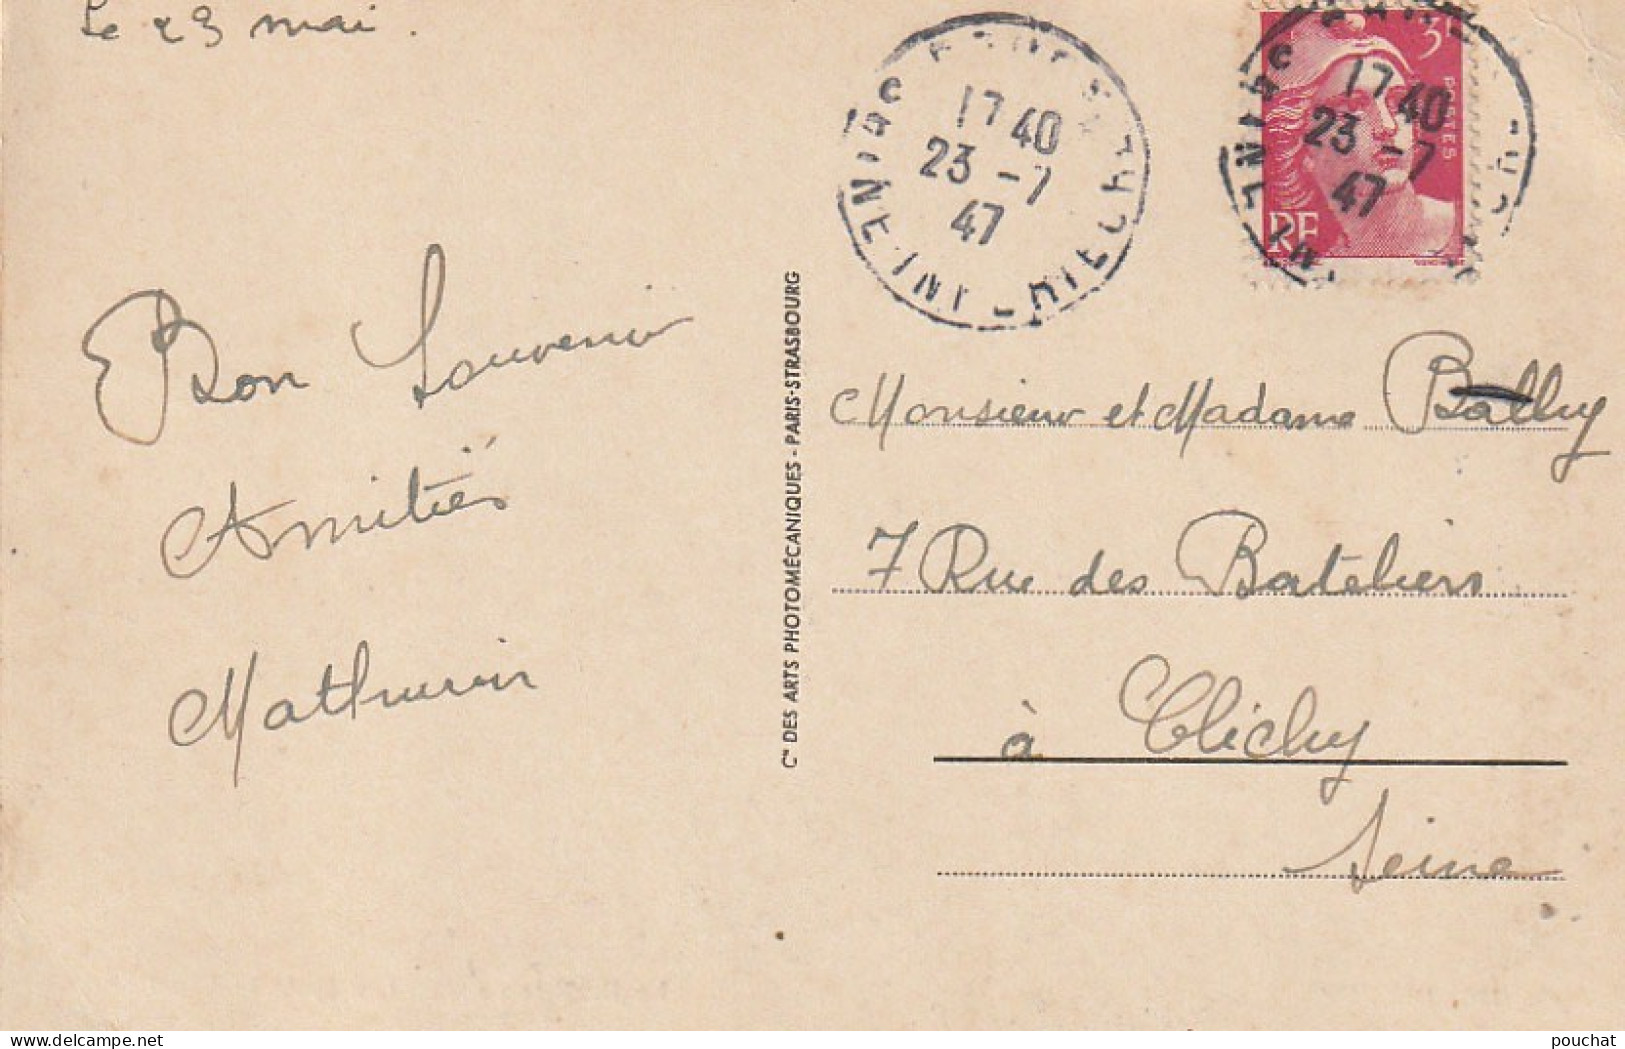 Le 23 mai.
Bon Souvenir
Amitiés
Mathurin
Cie DES ARTS PHOTOMÉCANIQUES - PARIS-STRASBOURG
17 40
23 -7
47
3F
POSTES
RF
17 40
23 -7
47
Monsieur et Madame Bally
7 Rue des Bateliers
à Clichy
Seine
www.delcampe.net
pouchat